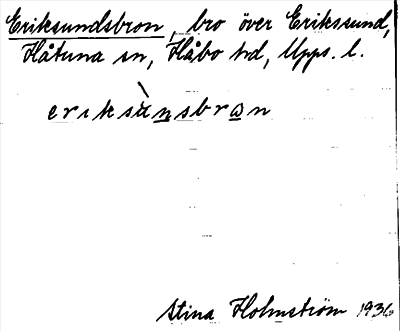 Eriksundsbron, bro över Erikssund,
Håtuna sn, Håbo hd, Upps. l.
eriksùnsbron
Stina Holmström 1936